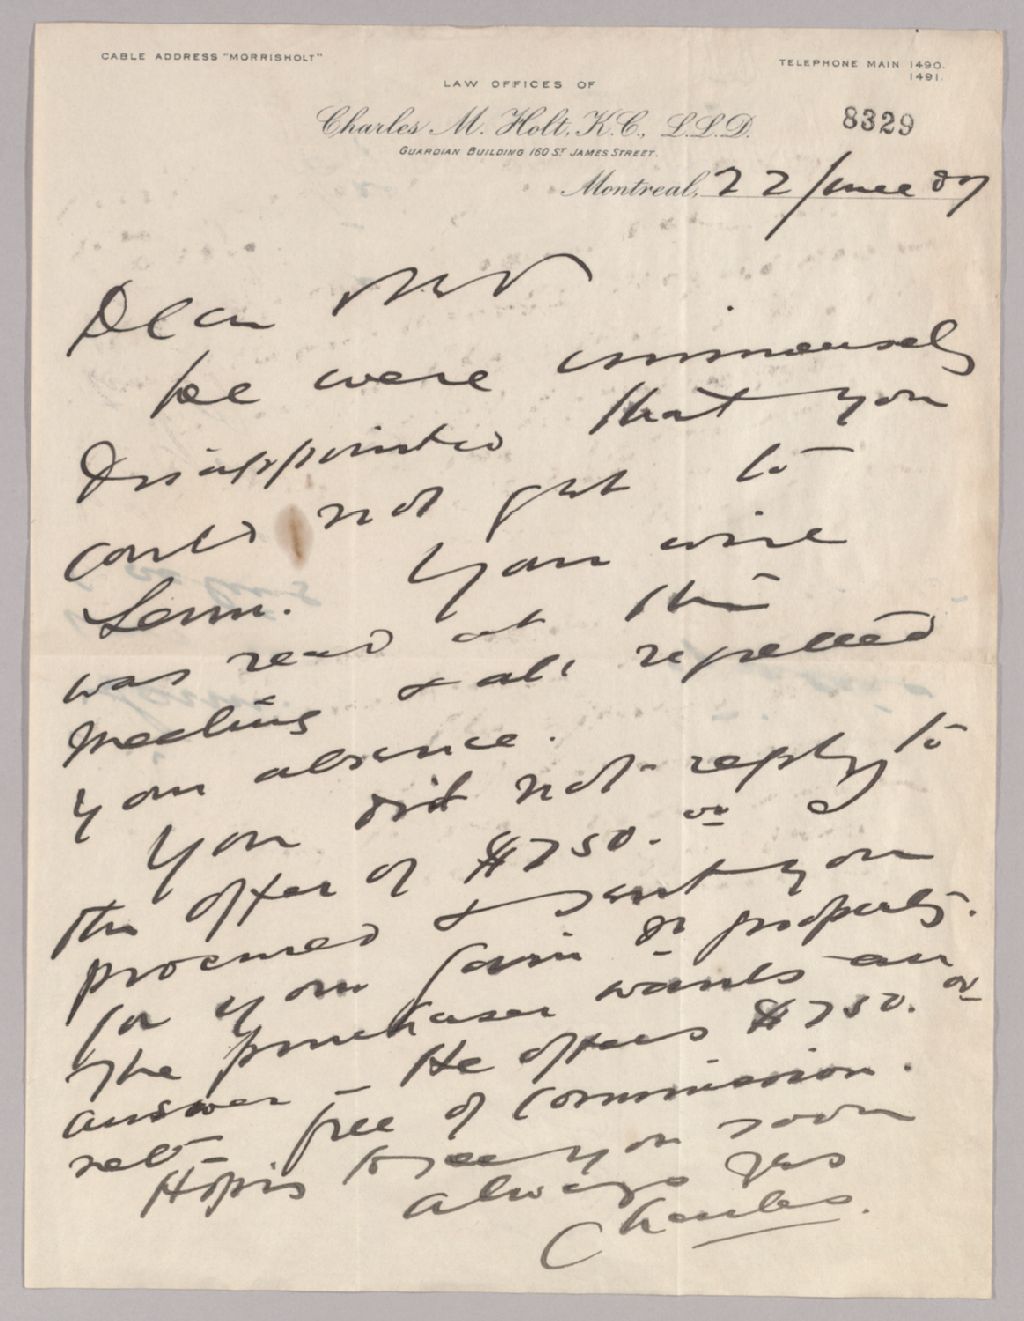 CABLE ADDRESS "MORRISHOLT"
TELEPHONE MAIN 1490.
1491.
LAW OFFICES OF
Charles M. Holt, K.C., L.L.D.
8329
GUARDIAN BUILDING 160 ST JAMES STREET.
Montreal, 22 June
Dear
We were immensely
disappointed that you
could not get to
Your wire
was read at the
meeting & all regretted
your absence.
You did not reply to
the offer of $750.00 I
procured & sent you
for your farm or property.
The purchaser wants an
answer – He offers $750.00
net – free of commission.
Hoping to see you soon
always yrs
Charles.